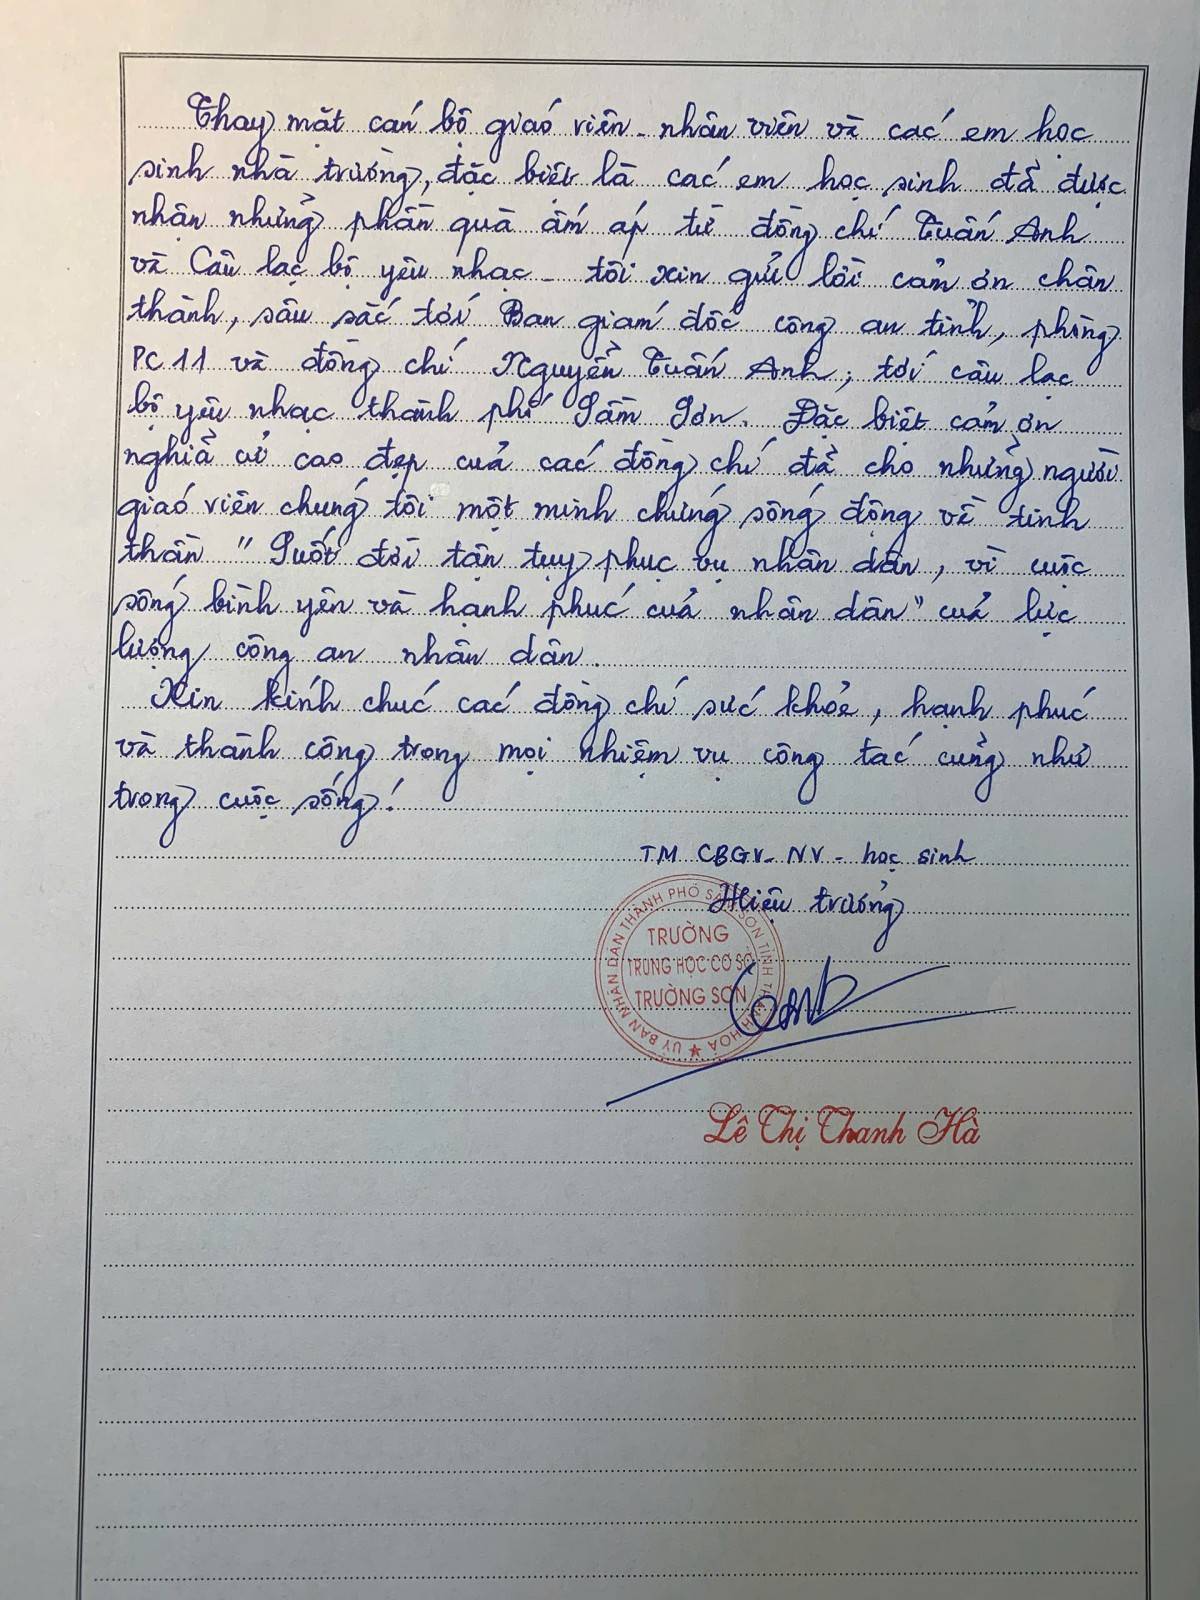 Thay mặt cán bộ giáo viên - nhân viên và các em học
sinh nhà trường, đặc biệt là các em học sinh đã được
nhận những phần quà ấm áp từ đồng chí Tuấn Anh
và Câu lạc bộ yêu nhạc - tôi xin gửi lời cảm ơn chân
thành, sâu sắc tới Ban giám đốc công an tỉnh, phòng
PC11 và đồng chí Nguyễn Tuấn Anh, tới câu lạc
bộ yêu nhạc thành phố Sầm Sơn. Đặc biệt cảm ơn
nghĩa cử cao đẹp của các đồng chí đã cho những người
giáo viên chúng tôi một minh chứng sống động về tinh
thần "Suốt đời tận tụy phục vụ nhân dân, vì cuộc
sống bình yên và hạnh phúc của nhân dân" của lực
lượng công an nhân dân.
Xin kính chúc các đồng chí sức khỏe, hạnh phúc
và thành công trong mọi nhiệm vụ công tác cũng như
trong cuộc sống!
TM CBGV - NV - học sinh
Hiệu trưởng
ỦY BAN NHÂN DÂN THÀNH PHỐ SẦM SƠN TỈNH THANH HOÁ
TRƯỜNG
TRUNG HỌC CƠ SỞ
TRƯỜNG SƠN
Lê Thị Thanh Hà